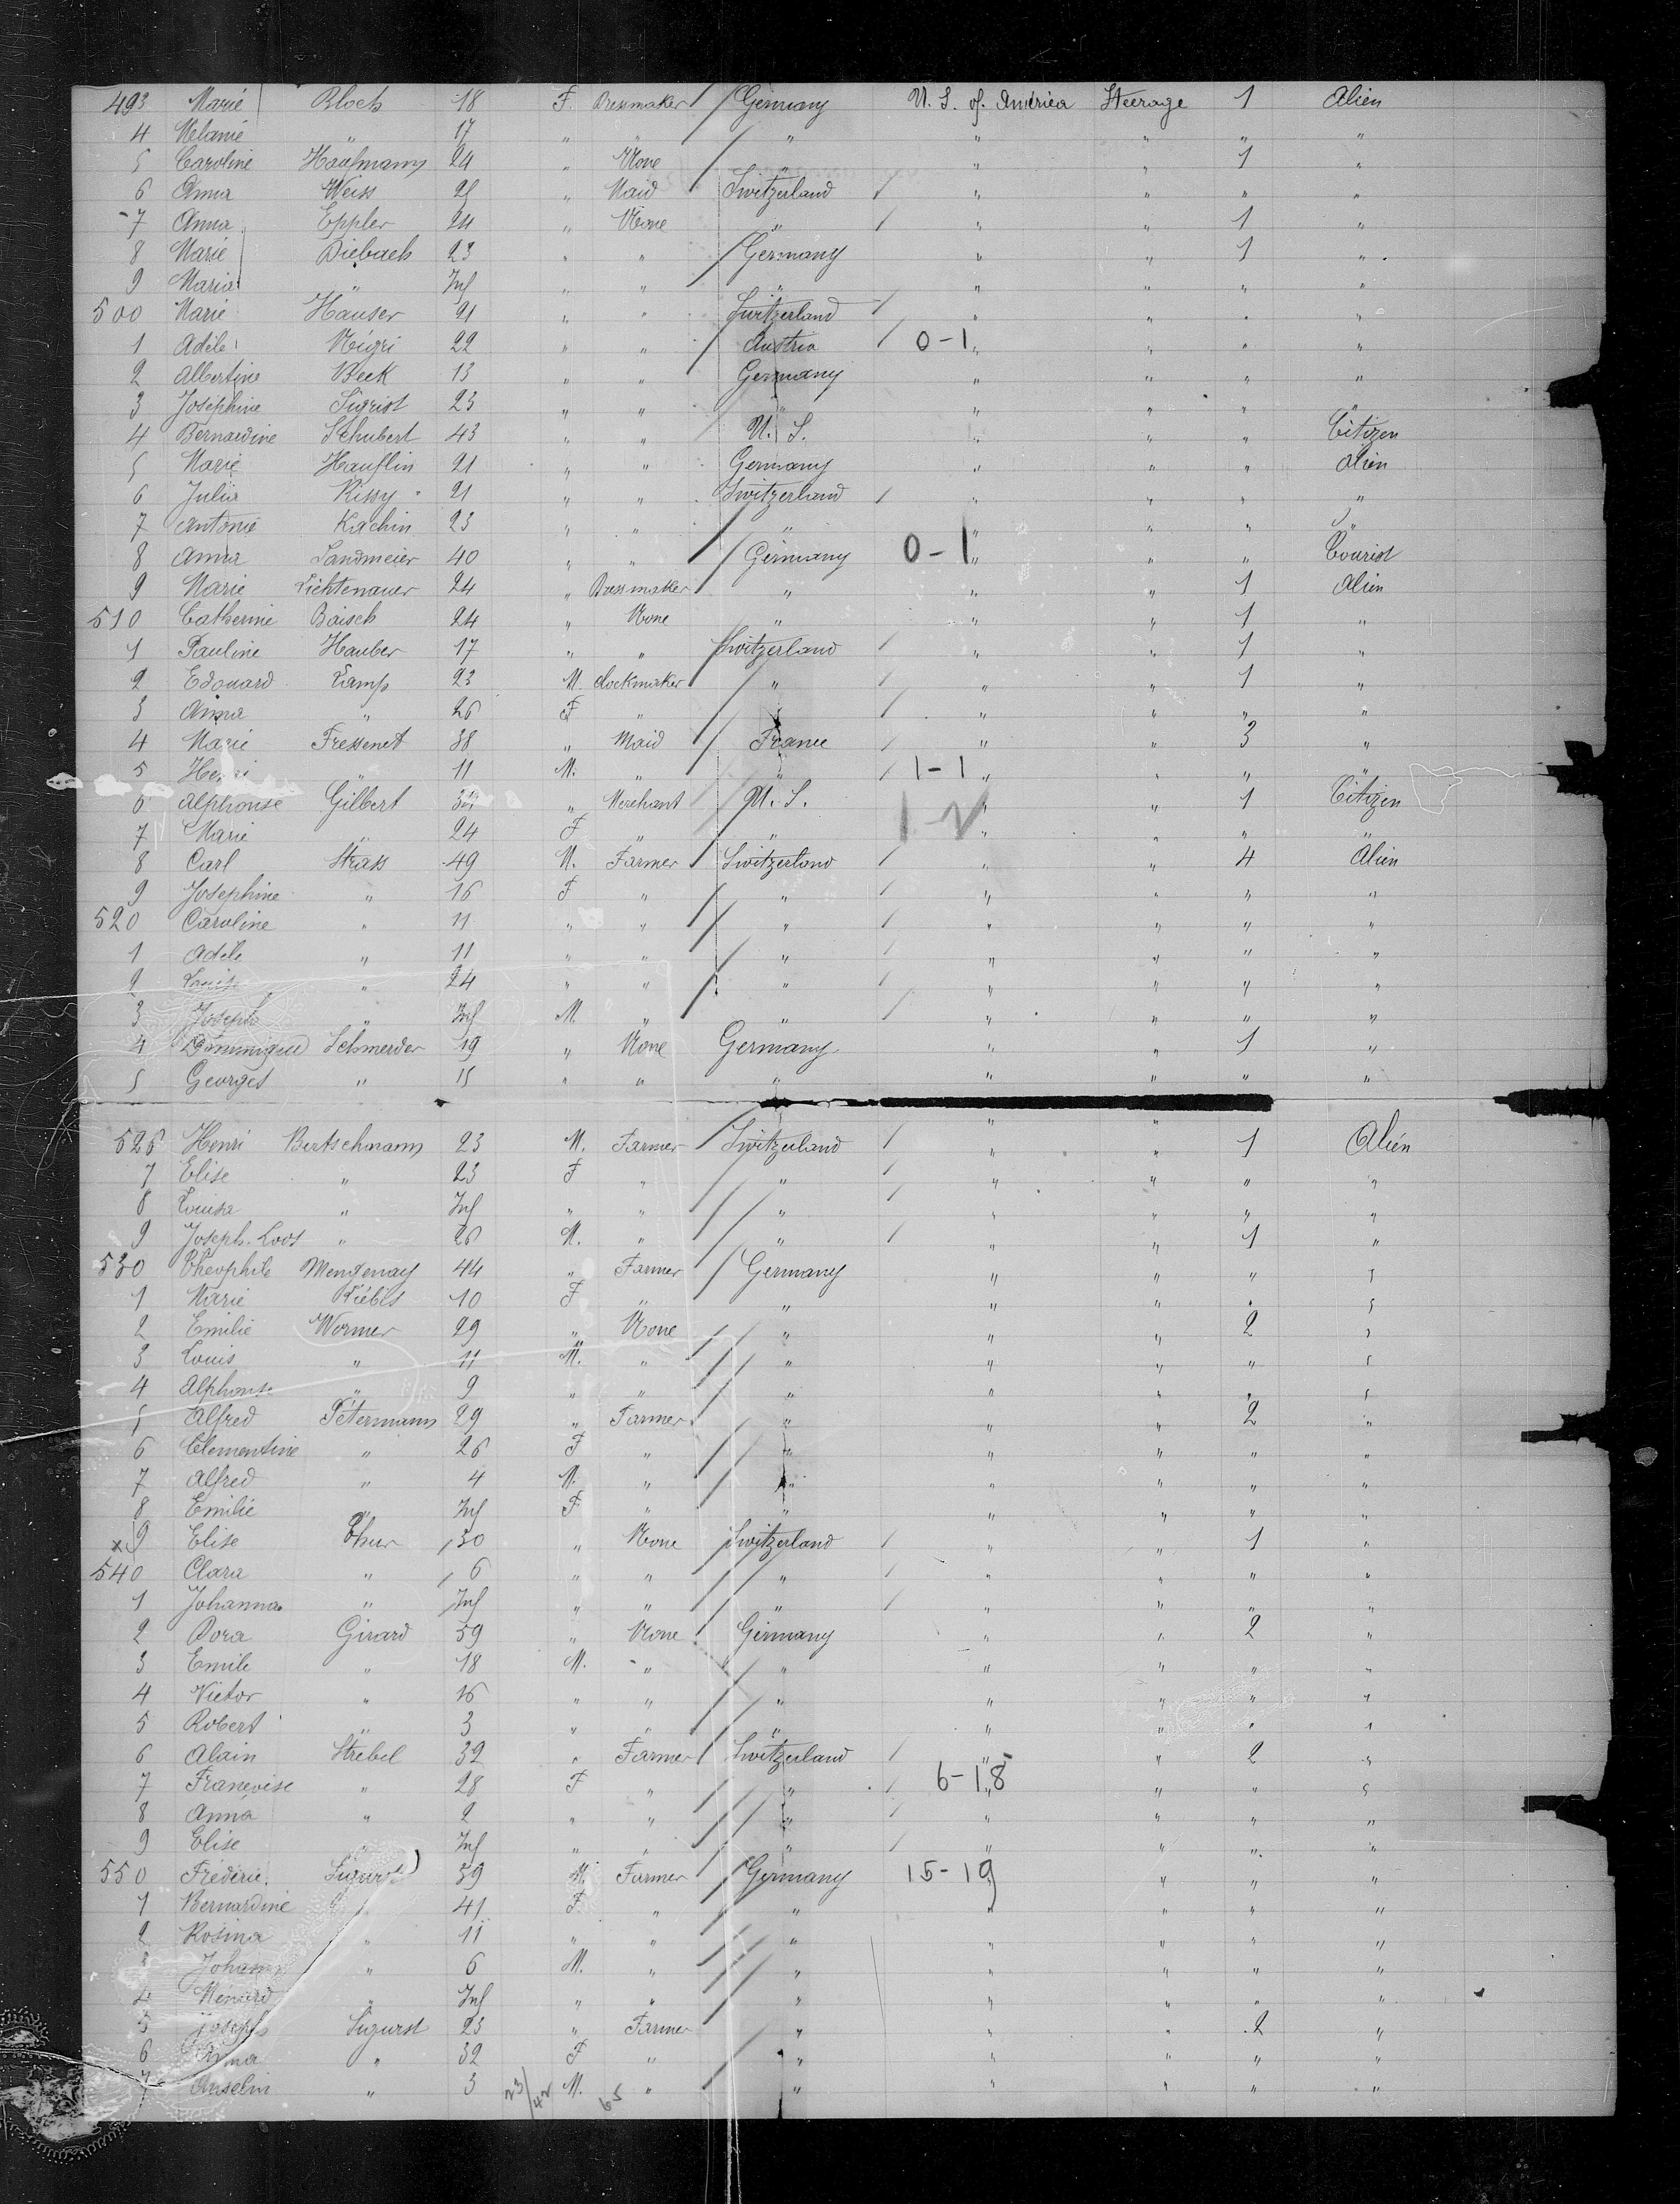 493 Marie Bloch 18 F. Dressmaker Germany U. S. of America Steerage 1 Alien
4 Melanie " 17 " " " " " " "
5 Caroline Haufmann 24 " None " " " 1 "
6 Anna Weiss 25 " Maid Switzerland " " " "
7 Anna Eppler 24 " None " " " 1 "
8 Marie Diebach 23 " " Germany " " 1 "
9 Maria " Inf " " " " " " "
500 Marie Hauser 21 " " Switzerland " " " "
1 Adèle Négri 22 " " Austria 0-1 " " " "
2 Albertine Beck 13 " " Germany " " " "
3 Josephine Sigrist 23 " " " " " " "
4 Bernardine Schubert 43 " " U. S. " " " Citizen
5 Marie Hauflin 21 " " Germany " " " Alien
6 Julia Rissy 21 " " Switzerland " " " "
7 Antonie Kachin 23 " " " " " " "
8 Anna Landmeier 40 " " Germany 0-1 " " " Tourist
9 Marie Lichtenauer 24 " Dressmaker " " " 1 Alien
510 Catherine Baisch 24 " None " " " 1 "
1 Pauline Hauber 17 " " Switzerland " " 1 "
2 Edouard Lamp 23 M. Clockmaker " " " 1 "
3 Anna " 26 F " " " " " "
4 Marie Fressenet 38 " Maid France " " 3 "
5 Henri " 11 M. " " 1-1 " " " "
6 Alphonse Gilbert 34 " Merchant U. S. " " 1 Citizen
7 Marie " 24 F " " " " " "
8 Carl Strass 49 M. Farmer Switzerland " " 4 Alien
9 Josephine " 16 F " " " " " "
520 Caroline " 11 " " " " " " "
1 Adèle " 11 " " " " " " "
2 Louise " 24 " " " " " " "
3 Joseph " Inf M. " " " " " "
4 Dominique Schmerder 19 " None Germany " " 1 "
5 Georges " 15 " " " " " " "
526 Henri Bertschmann 23 M. Farmer Switzerland " " 1 Alien
7 Elise " 23 F " " " " " "
8 Louisa " Inf " " " " " " "
9 Joseph. Loos " 26 M. " " " " 1 "
530 Theophile Mengenay 44 " Farmer Germany " " " "
1 Marie Liebis 10 F " " " " " "
2 Emilie Wormer 29 " None " " " 2 "
3 Louis " 11 M. " " " " " "
4 Alphonse " 9 " " " " " " "
5 Alfred Pétermann 29 " Farmer " " " 2 "
6 Clementine " 26 F " " " " " "
7 Alfred " 4 M. " " " " " "
8 Emilie " Inf F " " " " " "
x 9 Elise Thur 30 " None Switzerland " " 1 "
540 Clara " 6 " " " " " " "
1 Johanna " Inf " " " " " " "
2 Dora Girard 59 " None Germany " " 2 "
3 Emile " 18 M. " " " " " "
4 Victor " 16 " " " " " " "
5 Robert " 3 " " " " " " "
6 Alain Strebel 32 " Farmer Switzerland " " 2 "
7 Francoise " 28 F " " 6-18 " " " "
8 Anna " 2 " " " " " " "
9 Elise " Inf " " " " " " "
550 Frederic 39 M. Farmer Germany 15-19 " " " "
1 Bernardine " 41 F " " " " " "
2 Rosina " 11 " " " " " " "
3 Johann " 6 M. " " " " " "
4 Menard " Inf " " " " " " "
5 Joseph Sigurst 23 " Farmer " " " 2 "
6 Anna " 32 F " " " " " "
7 Anselm " 3 M. " " " " " "
23/42 65